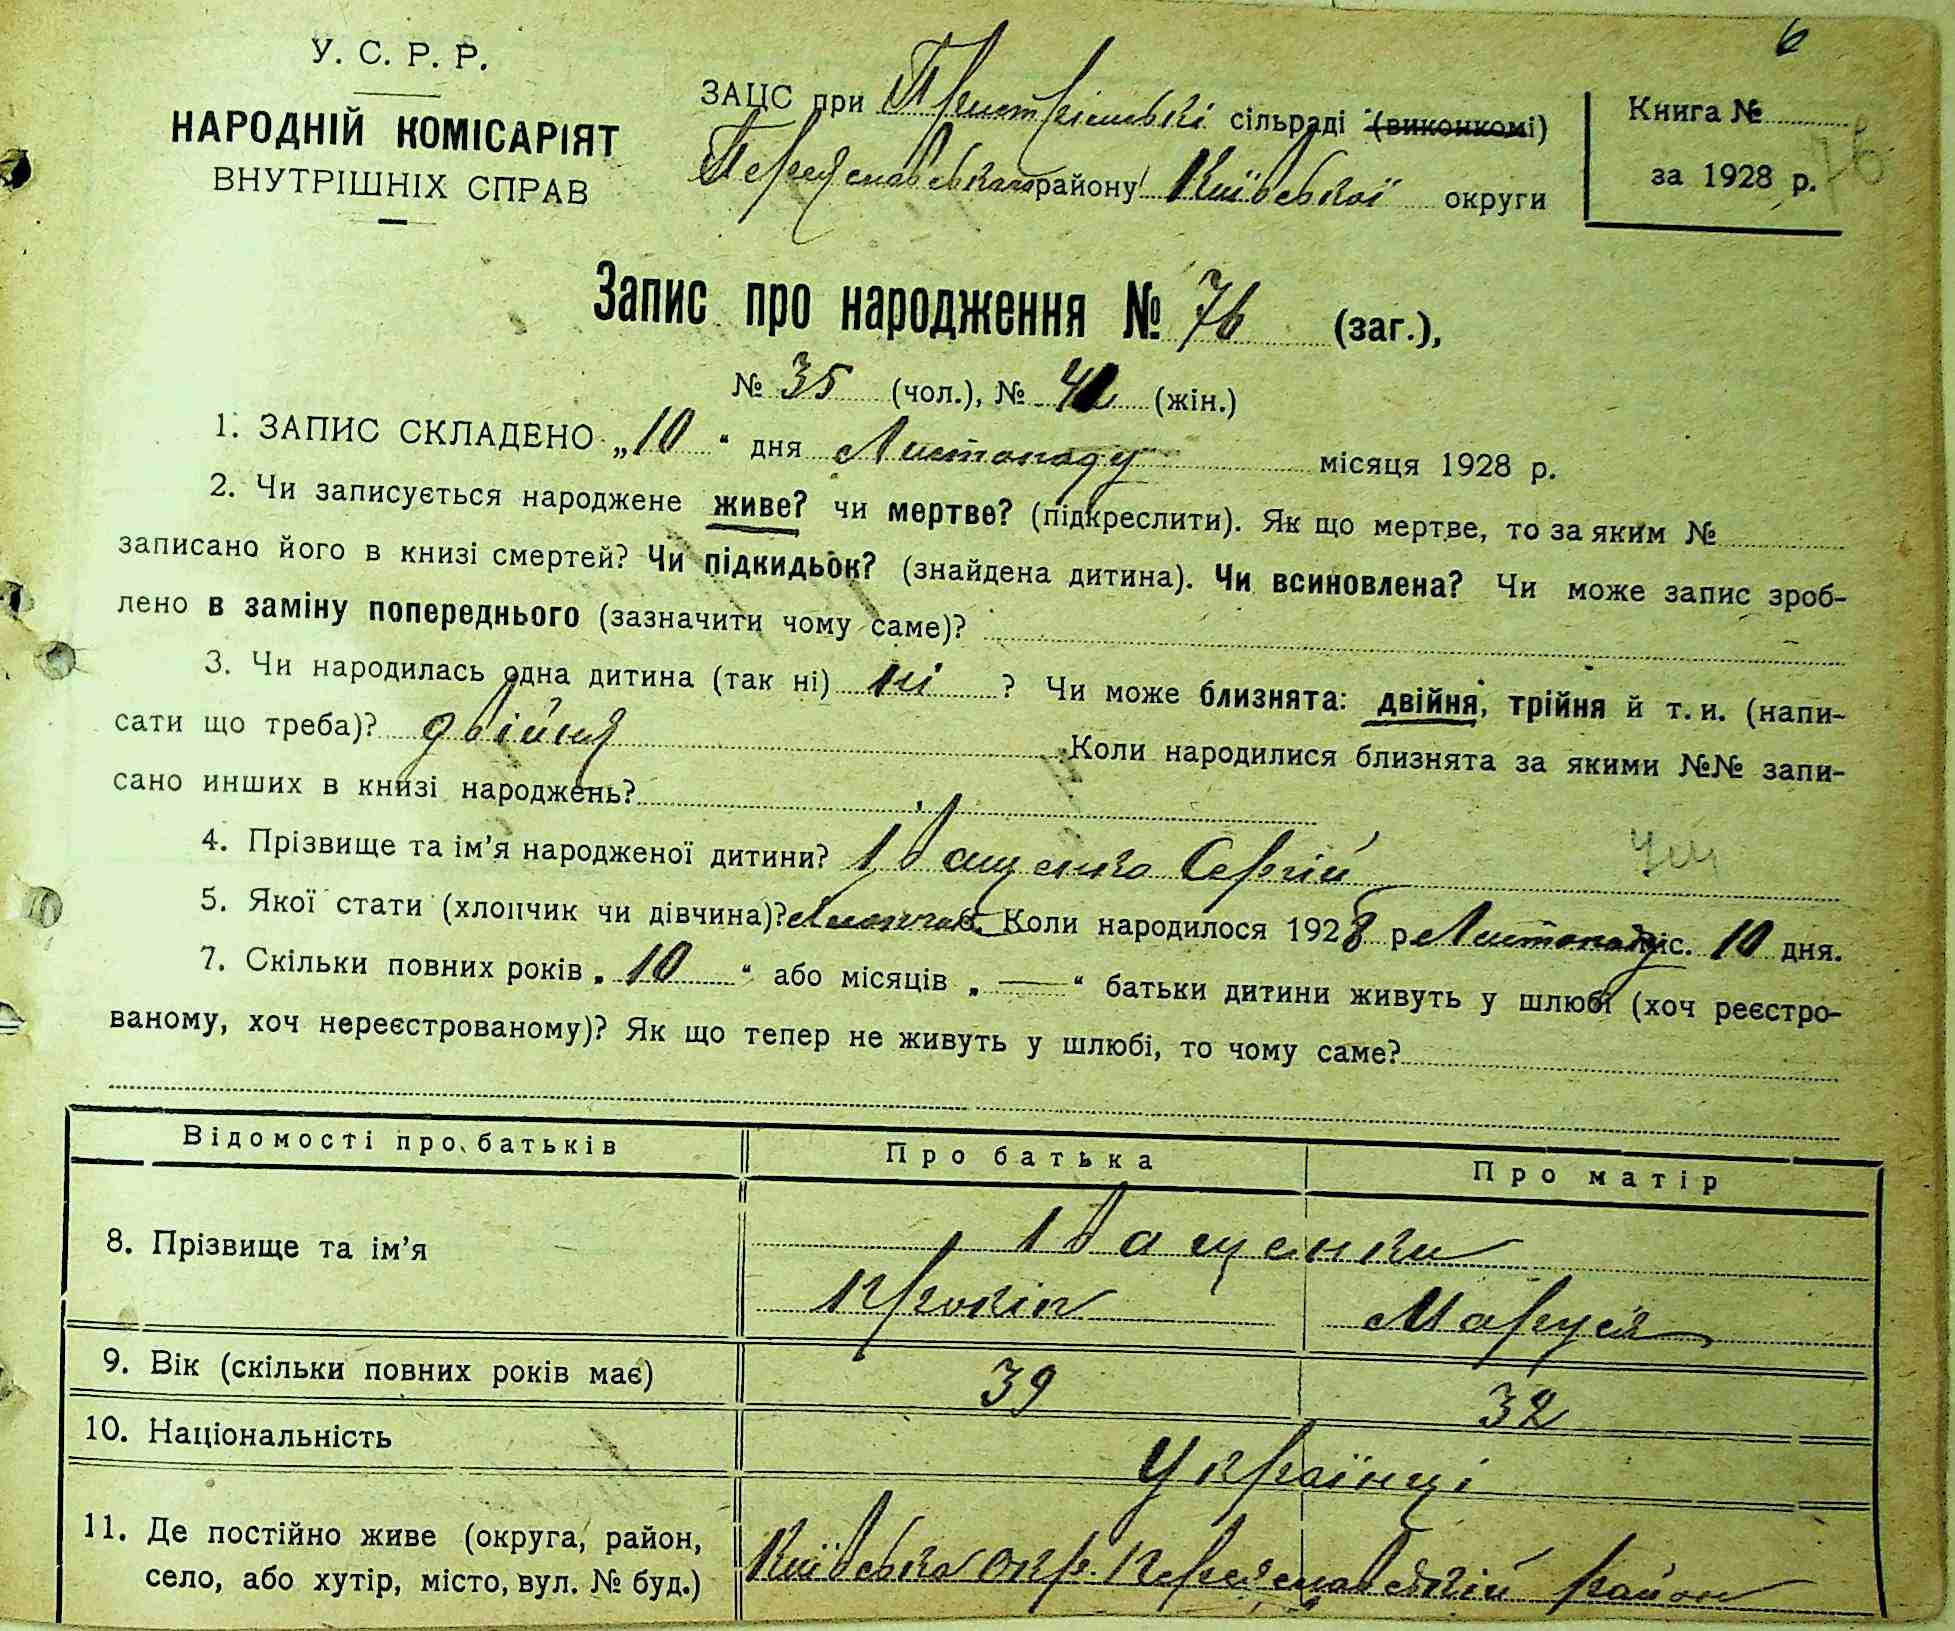 6
У. С. Р. Р.
НАРОДНІЙ КОМІСАРІЯТ
ВНУТРІШНІХ СПРАВ
ЗАЦС при Пристромській сільраді (виконкомі)
Переяславського району Київської округи
Книга №
за 1928 р.
76
Запис про народження № 76 (заг.),
№ 35 (чол.), № 41 (жін.)
1. ЗАПИС СКЛАДЕНО „10“ дня Листопаду місяця 1928 р.
2. Чи записується народжене живе? чи мертве? (підкреслити). Як що мертве, то за яким №
записано його в книзі смертей? Чи підкидьок? (знайдена дитина). Чи всиновлена? Чи може запис зроб-
лено в заміну попереднього (зазначити чому саме)?
3. Чи народилась одна дитина (так ні) ні ? Чи може близнята: двійня, трійня й т. и. (напи-
сати що треба)? двійня Коли народилися близнята за якими №№ запи-
сано инших в книзі народжень?
4. Прізвище та ім'я народженої дитини? Іващенко Сергій
5. Якої стати (хлопчик чи дівчина)? хлопчик 6. Коли народилося 1928 р Листопаду міс. 10 дня.
7. Скільки повних років „10“ або місяців „—“ батьки дитини живуть у шлюбі (хоч реєстро-
ваному, хоч нереєстрованому)? Як що тепер не живуть у шлюбі, то чому саме?
Відомості про батьків Про батька Про матір
8. Прізвище та ім'я Іващенки
Прокіп Маруся
9. Вік (скільки повних років має) 39 32
10. Національність Українці
11. Де постійно живе (округа, район,
село, або хутір, місто, вул. № буд.) Київська окр. Переяславський район